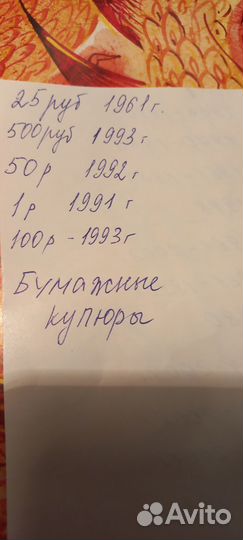 25руб 1961г.
500руб 1993г
50р 1992г
1р 1991г
100р - 1993г
Бумажные
купюры
Avito